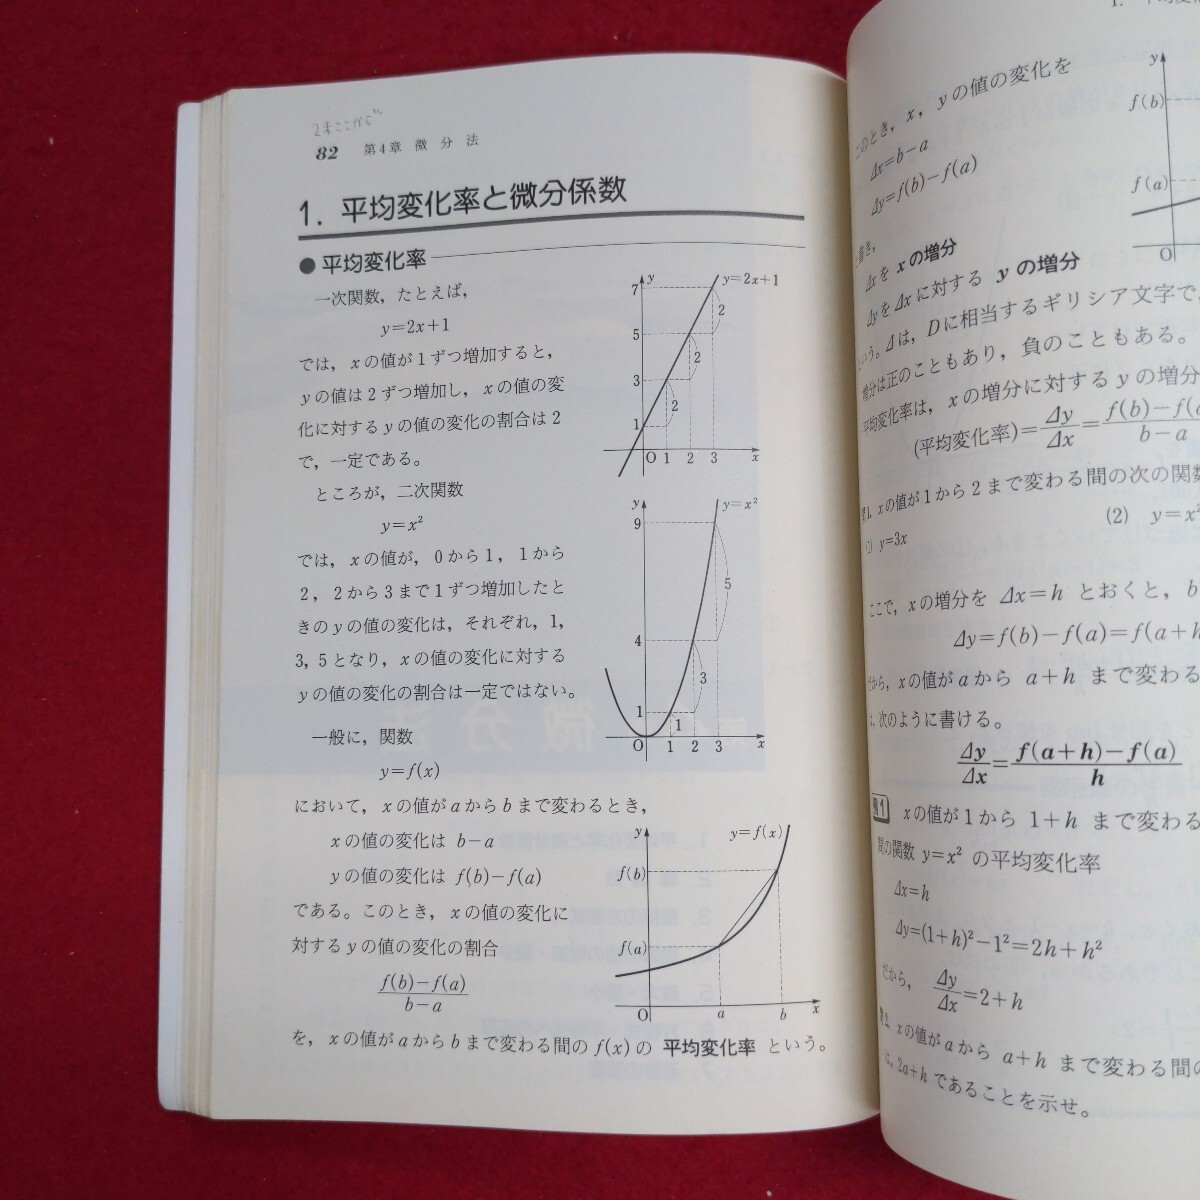 2年ここから
82 第4章 微分法
1. 平均変化率と微分係数
● 平均変化率
一次関数，たとえば，
y=2x+1
では，xの値が1ずつ増加すると，
yの値は2ずつ増加し，xの値の変
化に対するyの値の変化の割合は2
で，一定である。
ところが，二次関数
y=x²
では，xの値が，0から1，1から
2，2から3まで1ずつ増加したと
きのyの値の変化は，それぞれ，1，
3，5となり，xの値の変化に対する
yの値の変化の割合は一定ではない。
一般に，関数
y=f(x)
において，xの値がaからbまで変わるとき，
xの値の変化は b−a
yの値の変化は f(b)−f(a)
である。このとき，xの値の変化に
対するyの値の変化の割合
f(b)−f(a)
b−a
を，xの値がaからbまで変わる間のf(x)の 平均変化率 という。
y
y=2x+1
7
2
5
2
3
2
1
O 1 2 3 x
y
y=x²
9
5
4
3
1
1
O 1 2 3 x
y
y=f(x)
f(b)
f(a)
O a b x
このとき，x，yの値の変化を
Δx=b−a
Δy=f(b)−f(a)
Δxを xの増分
ΔyをΔxに対する yの増分
という。Δは，Dに相当するギリシア文字で，
増分は正のこともあり，負のこともある。
平均変化率は，xの増分に対するyの増分
(平均変化率)=Δy/Δx=f(b)−f(a)/b−a
問1. xの値が1から2まで変わる間の次の関数
(1) y=3x (2) y=x²
ここで，xの増分を Δx=h とおくと，b
Δy=f(b)−f(a)=f(a+h
だから，xの値がaから a+h まで変わる
は，次のように書ける。
Δy/Δx=f(a+h)−f(a)/h
例1 xの値が1から 1+h まで変わる
間の関数 y=x² の平均変化率
Δx=h
Δy=(1+h)²−1²=2h+h²
だから，Δy/Δx=2+h
問2. xの値がaから a+h まで変わる間の
は，2a+hであることを示せ。
y
f(b)
f(a)
O